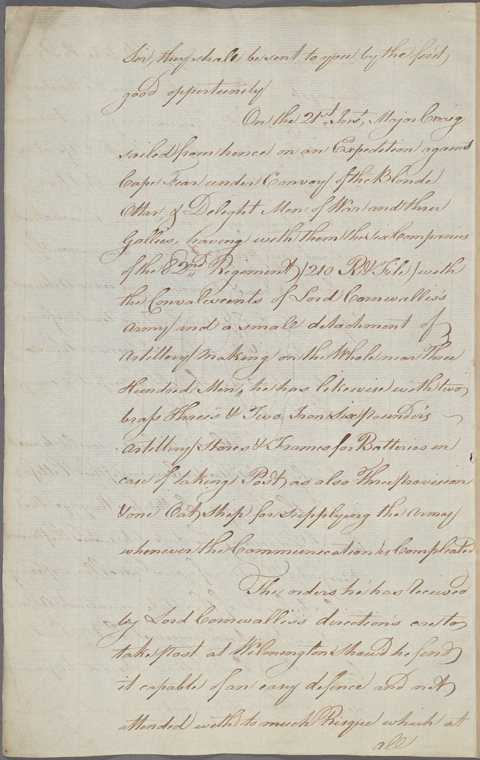 Sir, they shall be sent to you by the first
good opportunity
On the 21st Inst, Major Craig
sailed from hence on an Expedition against
Cape Fear under Convoy of the Blonde
Otter, & Delight Men of War and three
Gallies, having with them the Six Companies
of the 82nd Regiment (210 R & File) with
the Convalescents of Lord Cornwallis's
Army and a small detachment of
Artillery making on the Whole near Three
Hundred Men; he has likewise with two
brass Threes & Two Iron Six pounders
Artillery Stores & Frames for Batteries in
case of taking Post, as also Three provision
& one Oat Ship for supplying the Army
whenever the Communication is Compleated
The orders he has received
by Lord Cornwallis's direction's are to
take post at Wilmington shou'd he find
it capable of an easy defence and not
attended with to much Risque which at
all